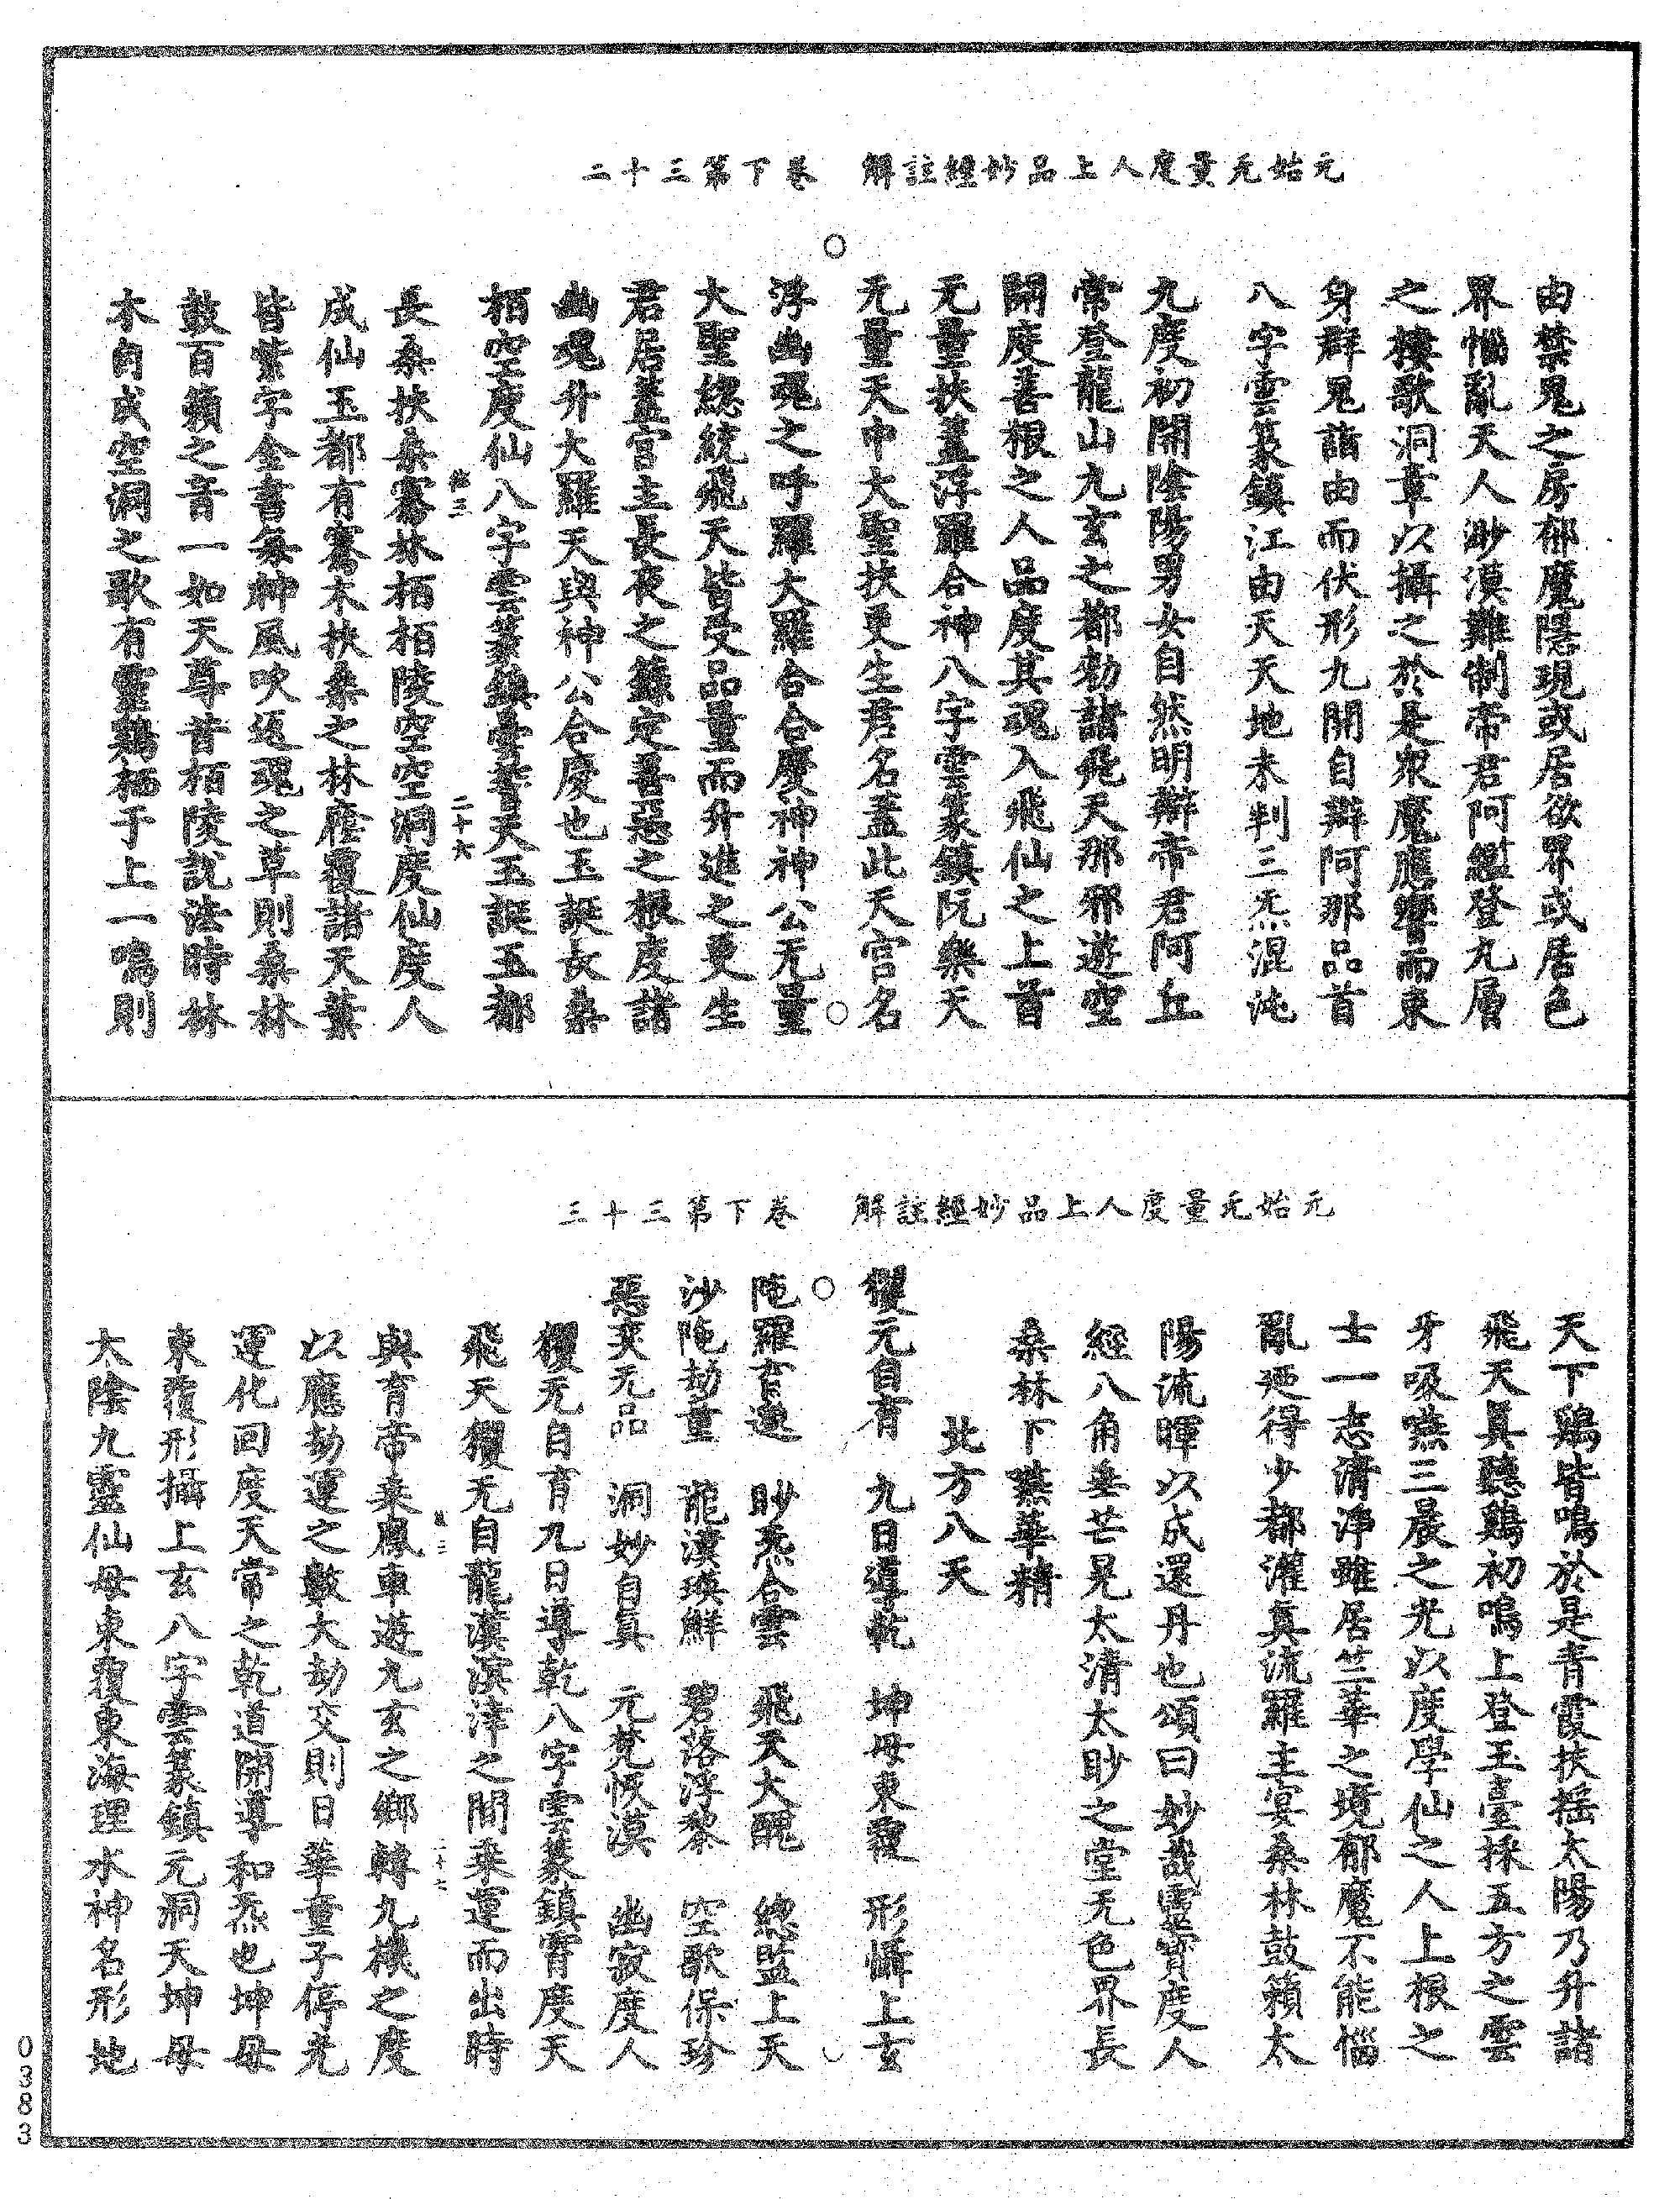 元始无量度人上品妙經註解　卷下第三十二
由禁鬼之房郁魔隱現或居欲界或居色
界惱亂天人眇漠難制帝君阿𤅢登九層
之樓歌洞章以攝之於是衆魔應響而束
身群鬼詣由而伏形九開自辯阿那品首
八字雲篆鎮江由天天地未判三炁混沌
九度初開陰陽男女自然明辯帝君阿丘
常登龍山九玄之都勑諸飛天那邪遊空
開度善根之人品度其魂入飛仙之上首
无量扶蓋浮羅合神八字雲篆鎮阮樂天
无量天中大聖扶更生君名蓋此天宫名
浮幽魂之呼羅大羅合合慶神神公无量
大聖總統飛天皆受品量而升進之更生
君居蓋宫主長夜之籙定善惡之根度諸
幽魂升大羅天與神公合慶也玉誕長桑
栢空度仙八字雲篆鎮曇誓天玉誕玉都
二十六
長桑扶桑騫林栢栢陵空空洞度仙度人
成仙玉都有騫木扶桑之林廕覆諸天葉
皆紫字金書每神風吹返魂之草則桑林
鼓百籟之音一如天尊昔栢陵說法時林
木自成空洞之歌有靈鷄栖于上一鳴則
元始无量度人上品妙經註解　卷下第三十三
天下鷄皆鳴於是青霞扶搖太陽乃升諸
飛天眞聽鷄初鳴上登玉臺採五方之雲
牙吸嚥三晨之光以度學仙之人上根之
士一志清淨雖居竺華之境郁魔不能惱
亂廼得少都灌眞流羅主宴桑林鼓籟太
陽流暉以成還丹也頌曰妙哉靈寶度人
經八角垂芒晃太清太眇之堂无色界長
桑林下嚥華精
北方八天
玃元自育　九日導乾　坤母東覆　形攝上玄
陁羅育邈　眇炁合雲　飛天大醜　總監上天
沙陁劫量　龍漢瑛鮮　碧落浮黎　空歌保珍
惡奕无品　洞妙自眞　元梵恢漠　幽寂度人
玃无自育九日導乾八字雲篆鎮霄度天
飛天玃无自龍漢溟涬之間乗運而出時
與育帝乗鳳車遊九玄之鄉轉九機之度
二十七
以應劫運之數大劫交則日華童子停光
運化回度天常之乾道開導和炁也坤母
東覆形攝上玄八字雲篆鎮元洞天坤母
太陰九靈仙母東覆東海理水神名形地
0383